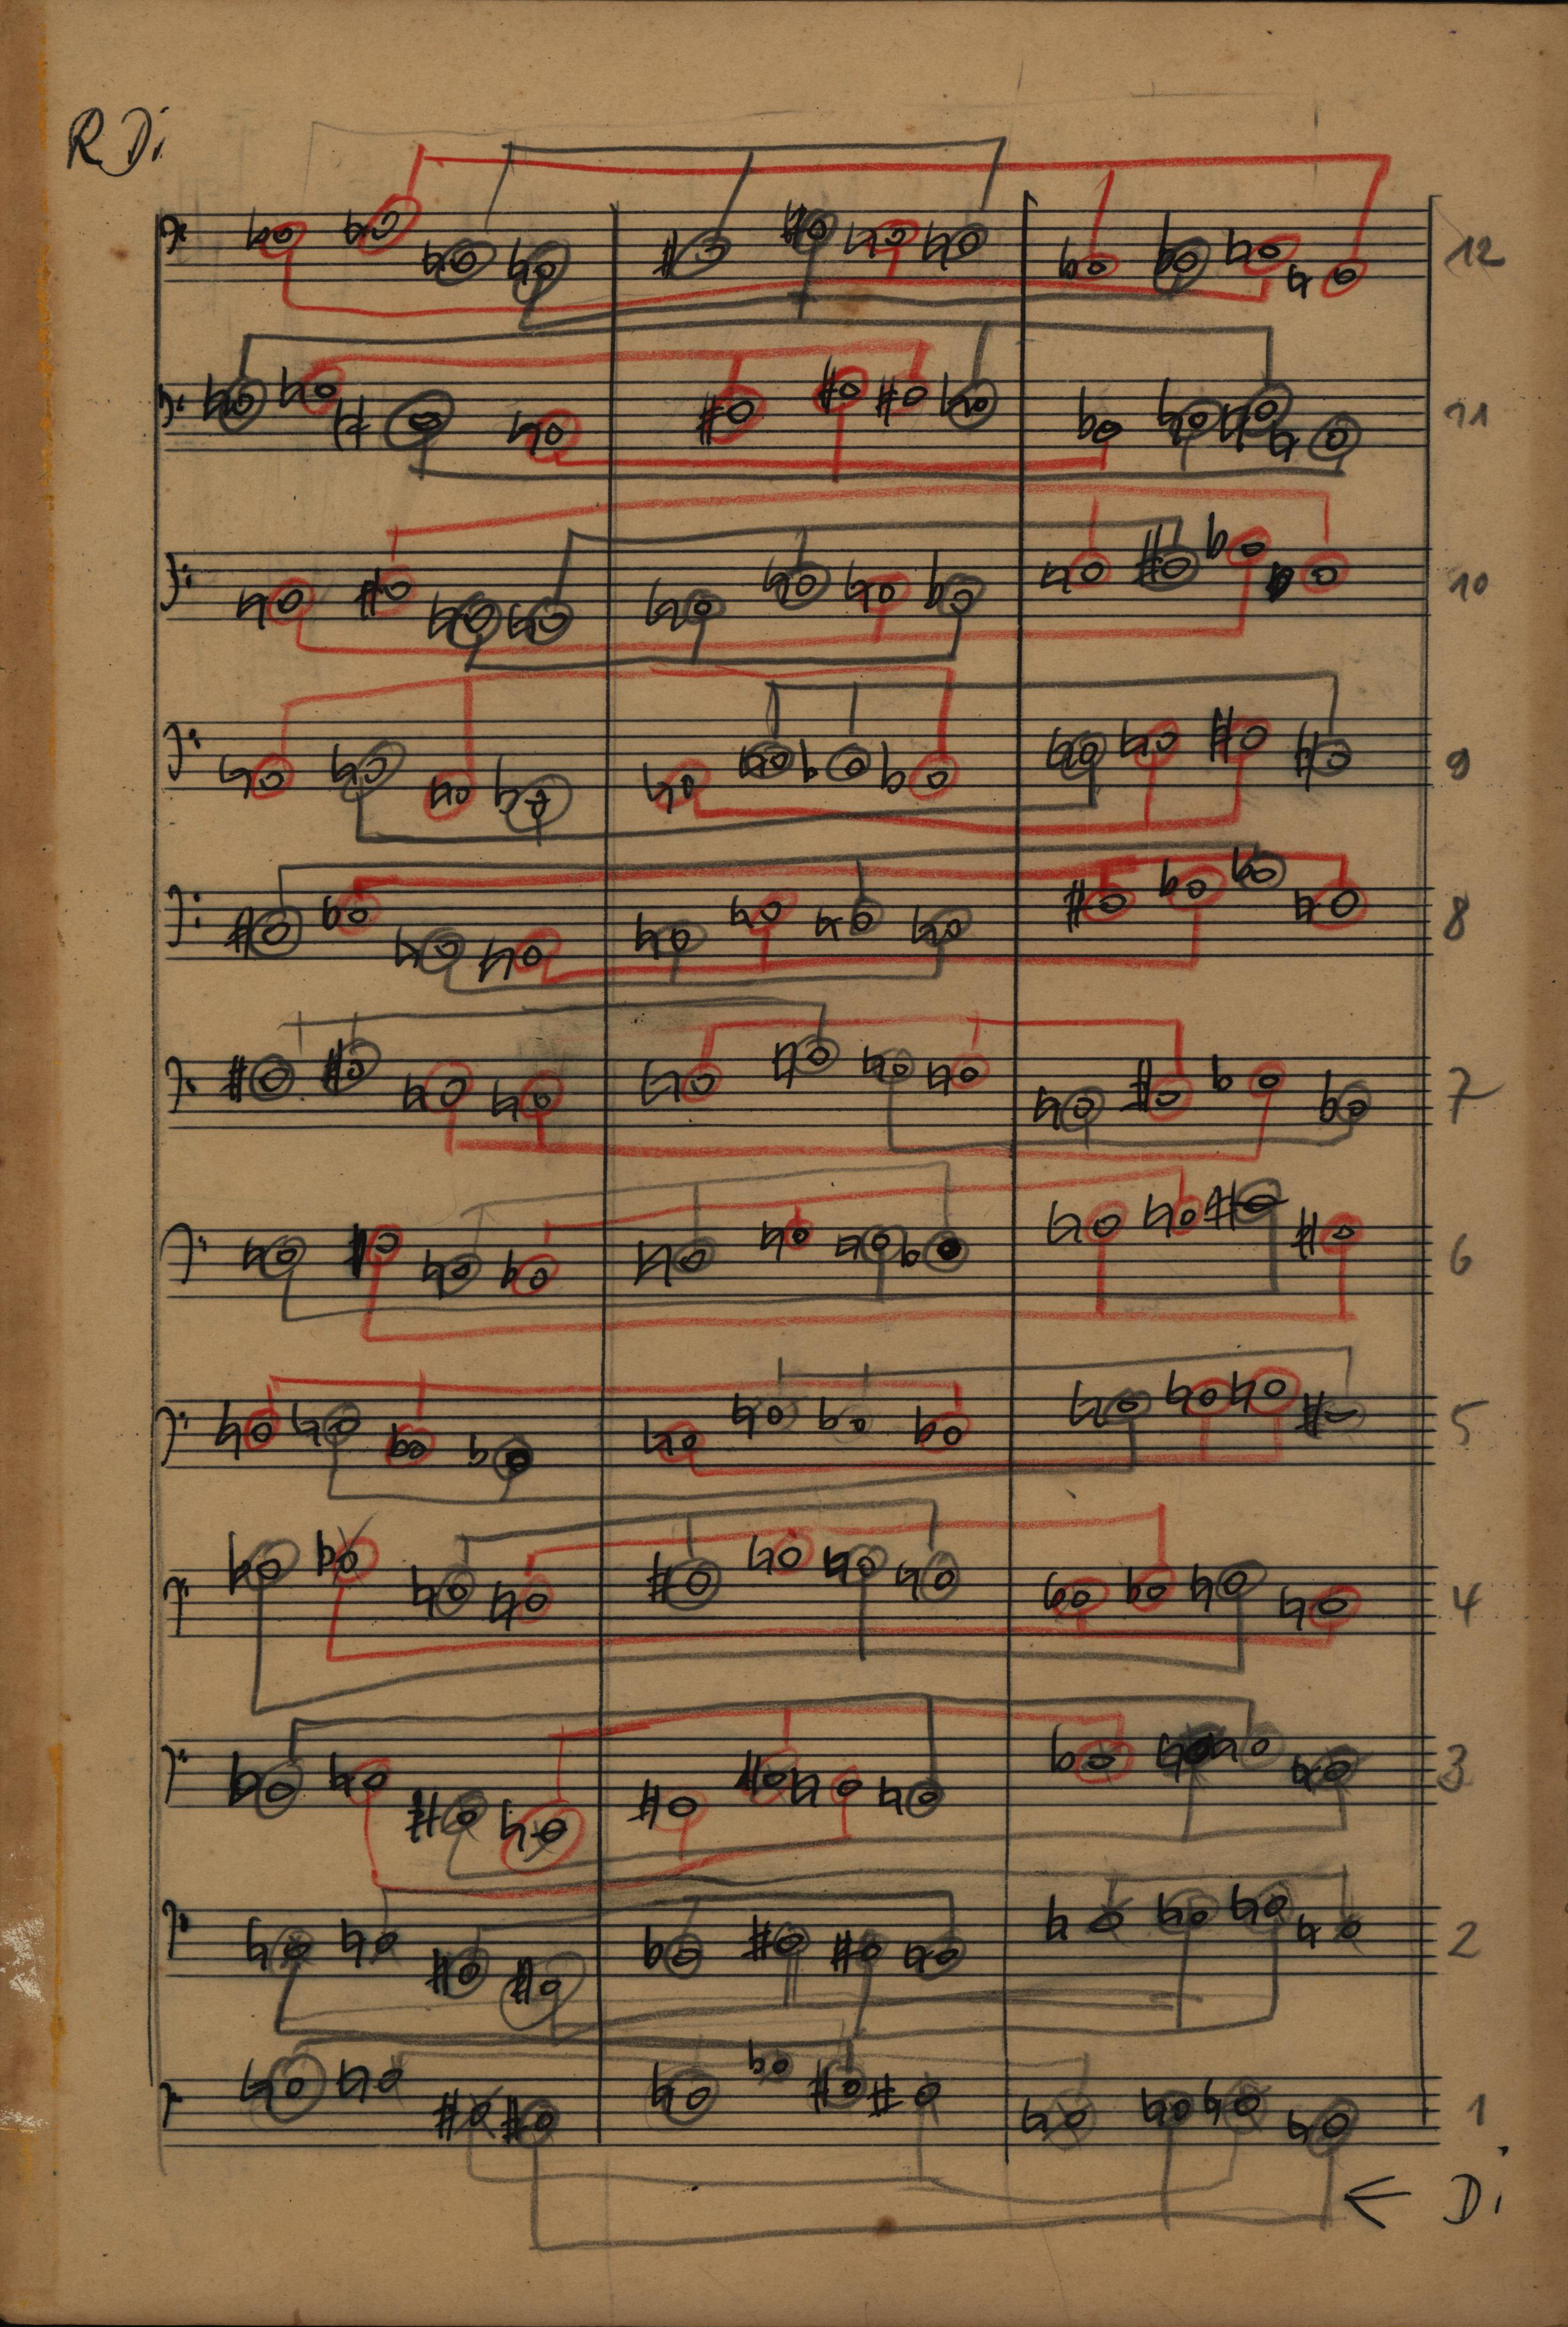 R Di
12
11
10
9
8
7
6
5
4
3
2
1
← Di